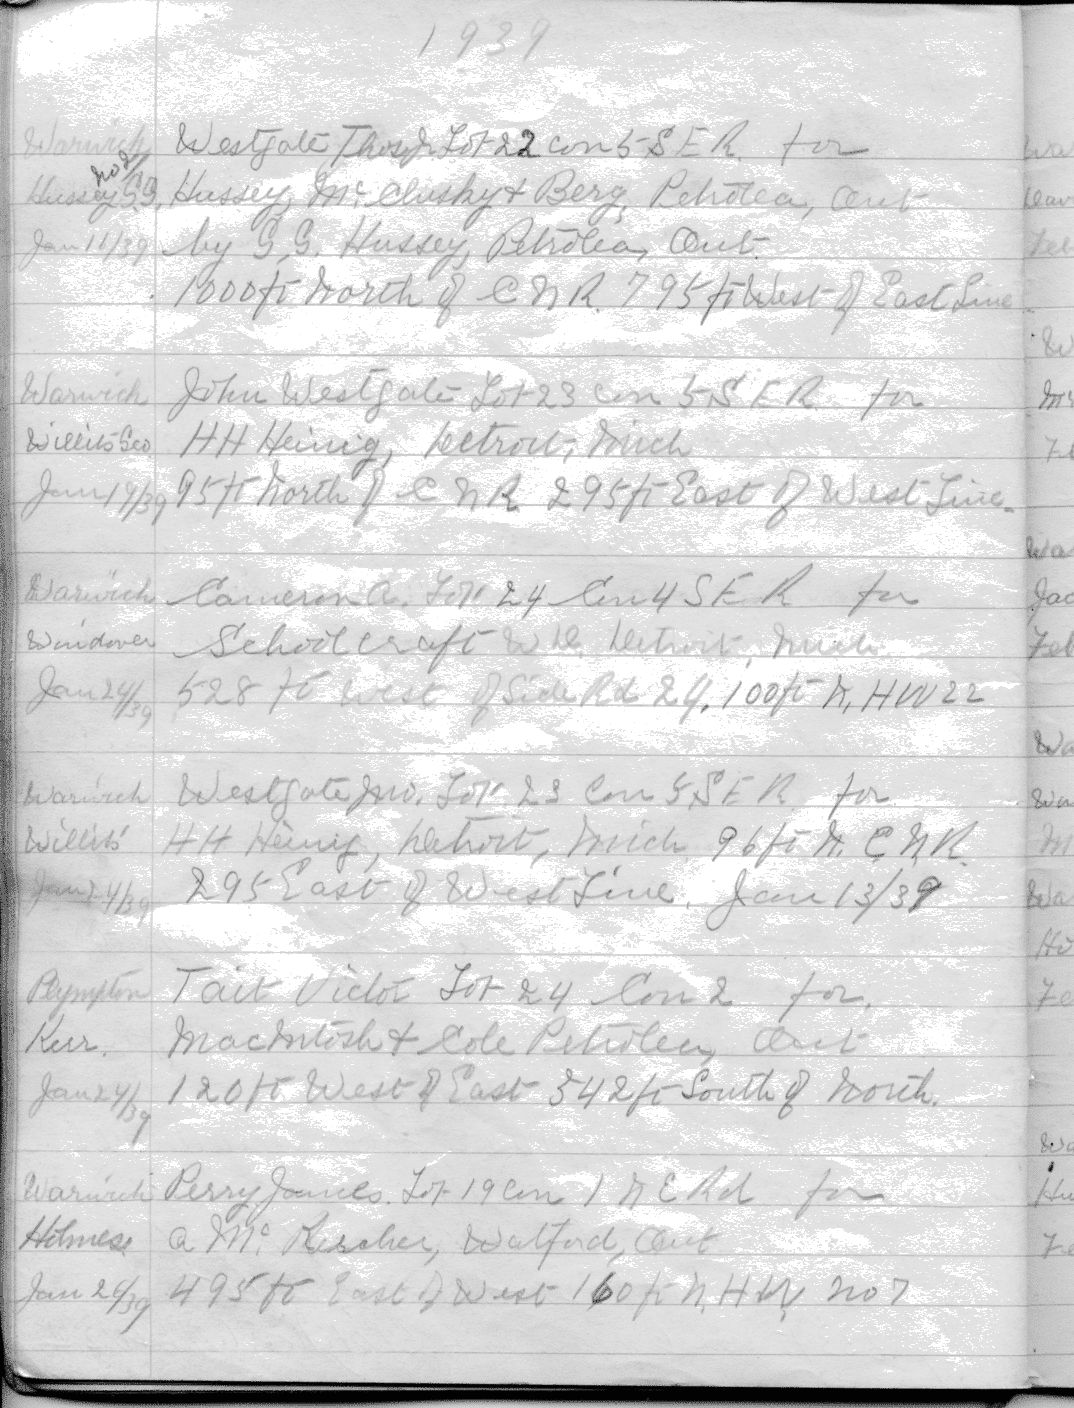 1939
Warwick Westgate Thos J. Lot 22 con 5 S E R for
No 2
Hussey G G, Hussey, McClusky & Berg, Petrolea, Ont
Jan 11/39 by G. G. Hussey, Petrolea, Ont.
1000 ft North of C N R. 795 ft West of East Line
Warwick John Westgate Lot 23 con 5 S E R for
Willits Geo H H Heinig, Detroit, Mich
Jan 19/39 95 ft North of C N R 295 ft East of West Line.
Warwick Cameron A. Lot 24 Con 4 S E R for
Windover Schoolcraft Detroit, Mich
Jan 24/39 528 ft West of Side Rd 24, 100 ft N. HW 22
Warwick Westgate Jno. Lot 23 Con 5 S E R for
Willits H H Heinig, Detroit, Mich 96 ft N. C. N. R.
Jan 24/39 295 East of West Line. Jan 13/39
Plympton Tait Victor Lot 24 Con 2 for.
Kerr. MacIntosh & Cole Petrolea, Ont
Jan 24/39 120 ft West of East 342 ft South of North.
Warwick Perry James. Lot 19 Con 1 N E Rd for
Holmes A Mc Kercher, Watford, Ont
Jan 26/39 495 ft East of West 160 ft N. H W, No 7